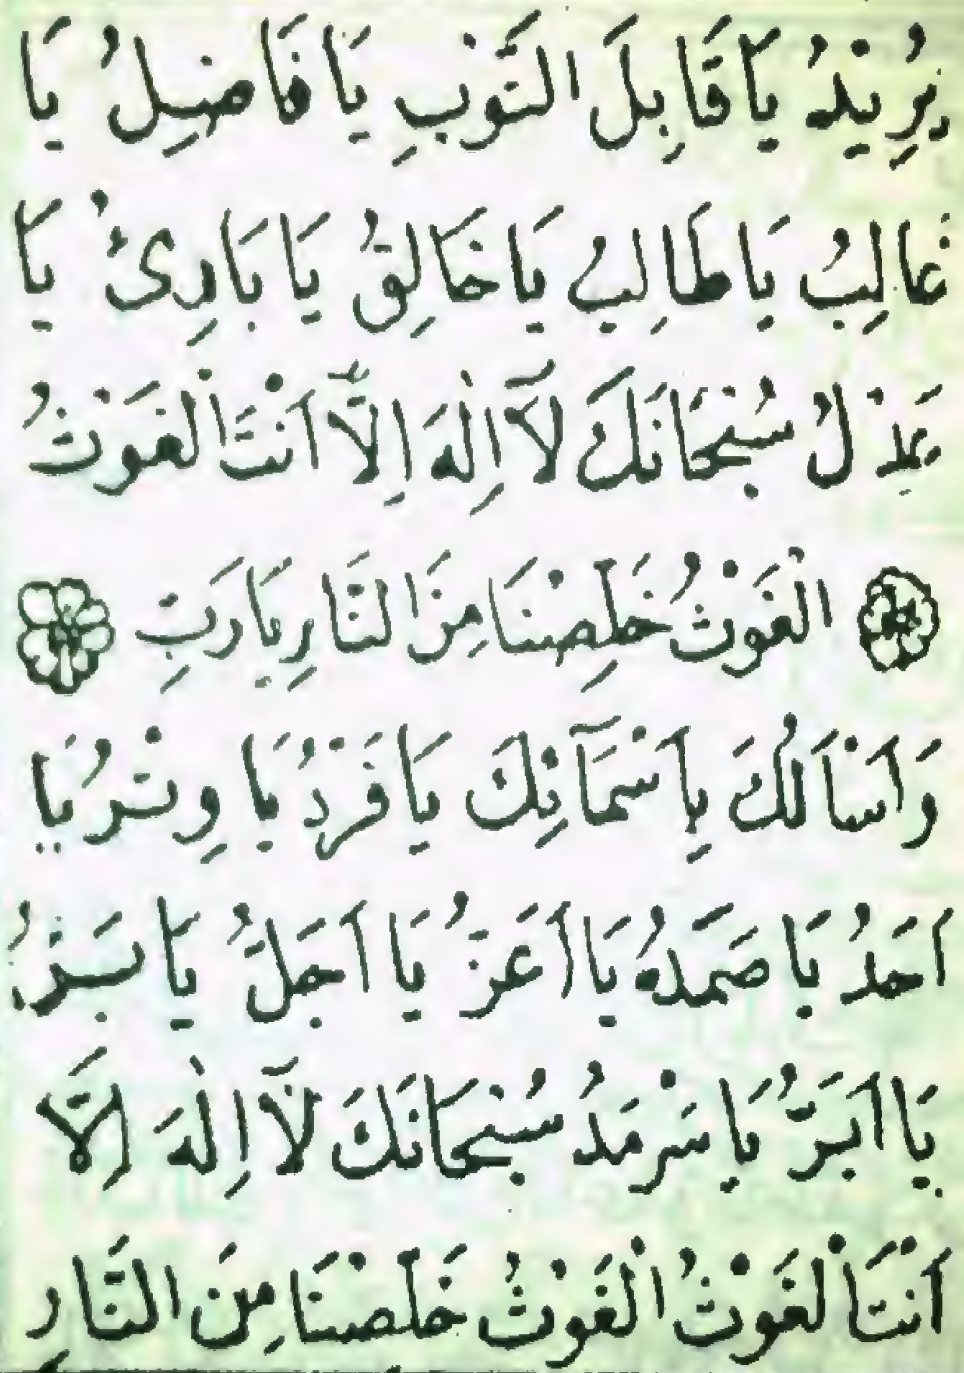 يُرِيْدُ يَا قَابِلَ التَّوْبِ يَا فَاضِلُ يَا
غَالِبُ يَا طَالِبُ يَا خَالِقُ يَا بَارِئُ يَا
سُبْحَانَكَ لَآ اِلٰهَ اِلَّا اَنْتَ الْغَوْثُ
الْغَوْثُ خَلِّصْنَا مِنَ النَّارِ يَارَبِّ
وَاَسْاَلُكَ بِاَسْمَآئِكَ يَا فَرْدُ يَا وِتْرُ يَا
اَحَدُ يَا صَمَدُ يَا اَعَزُّ يَا اَجَلُّ يَا بَرُّ
يَا اَبَرُّ يَا سَرْمَدُ سُبْحَانَكَ لَآ اِلٰهَ اِلَّا
اَنْتَ الْغَوْثُ الْغَوْثُ خَلِّصْنَا مِنَ النَّارِ